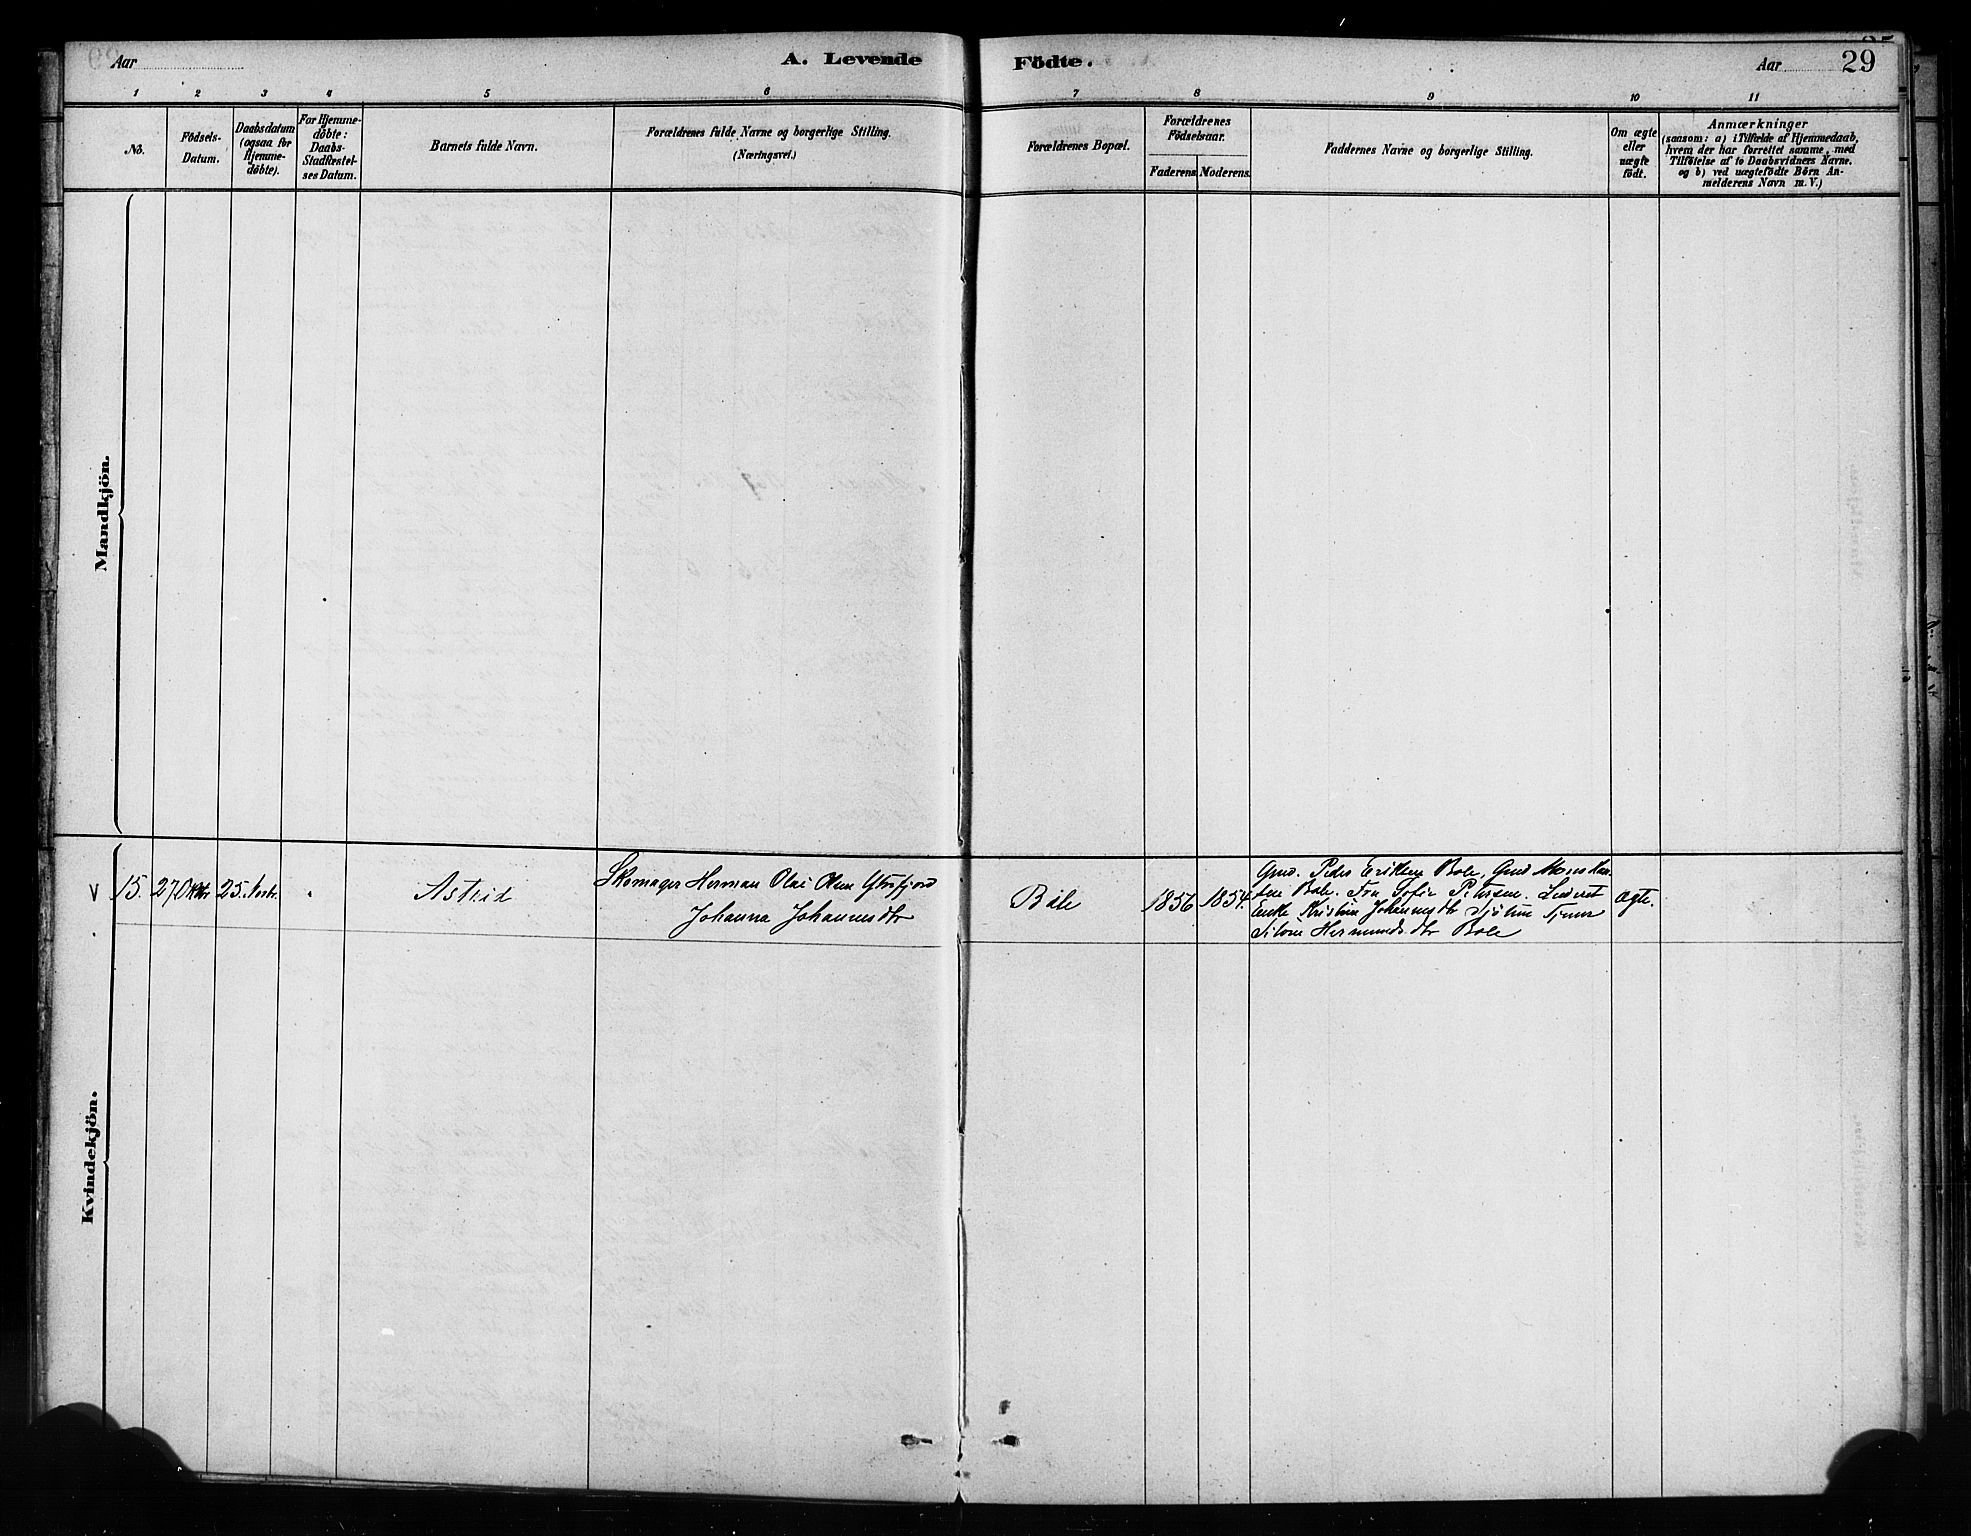 Aar
A. Levende
Födte.
Aar
29
1 2 3 4 5 6 7 8 9 10 11
No.
Födsels-
Datum.
Daabsdatum
(ogsaa for
Hjemme-
döbte).
For Hjemme-
döbte:
Daabs-
Stadfæstel-
ses Datum.
Barnets fulde Navn.
Forældrenes fulde Navne og borgerlige Stilling.
(Næringsvei.)
Forældrenes Bopæl.
Forældrenes
Födselsaar.
Faderens Moderens.
Faddernes Navne og borgerlige Stilling.
Om ægte
eller
uægte
födt.
Anmærkninger
(saasom: a) i Tilfælde af Hjemmedaab,
hvem der har forrettet samme, med
Tilföielse af to Daabsvidners Navne.
og b) ved uægtefödte Börn An-
melderens Navn m. V.)
Mandkjön.
Kvindekjön.
V 15. 27 Oktr 25. Novbr. Astrid
Skomager Herman Olai Olsen
Johanna Johannesdtr
Böle
1856 1854.
Gmd. Peder Eriksen Bole, Gmd Mons Han-
sen Bole. Fru Sofie Petersen.
Enke Kristine Johannesdtr
Hermundsdtr Bole
ægte.